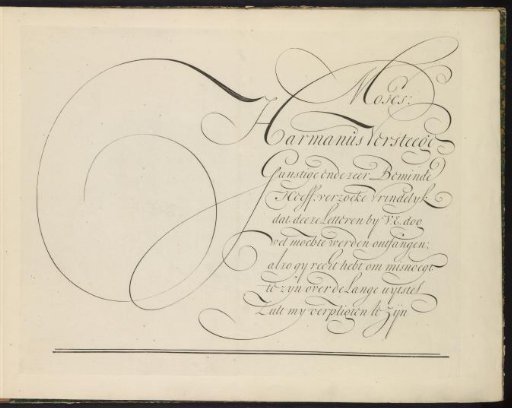 Moses:
Harmanus Versteege
Gunstige ende zeer Beminde
Neeff: verzoeke Vrindelyk
dat deeze Letteren by VE. zoo
wel mochte werden ontfangen;
alzo gy recht hebt om misnoegt
te zyn over de Lange uytstel
Zult my verplichten te Zyn